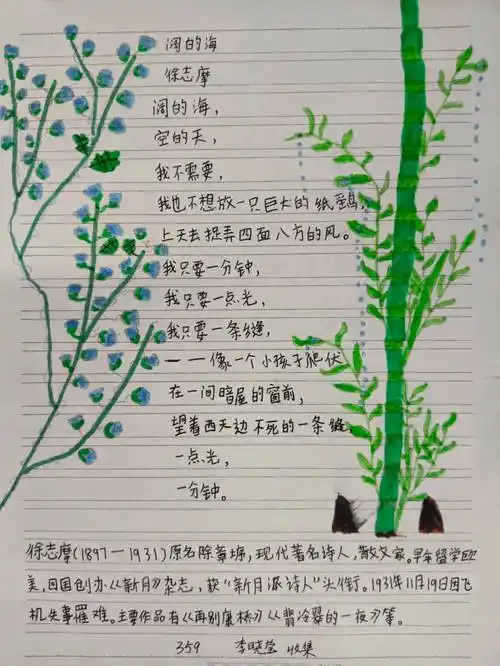 阔的海
徐志摩
阔的海,
空的天,
我不需要,
我也不想放一只巨大的纸鹞,
上天去捉弄四面八方的风。
我只要一分钟,
我只要一点光,
我只要一条缝,
——像一个小孩子爬伏
在一间暗屋的窗前,
望着西天边不死的一条缝
一点光,
一分钟。
徐志摩(1897—1931)原名徐章垿,现代著名诗人,散文家。早年留学欧
美,回国创办《新月》杂志,获“新月派诗人”头衔。1931年11月19日因飞
机失事罹难。主要作品有《再别康桥》《翡冷翠的一夜》等。
359 李晓莹 收集